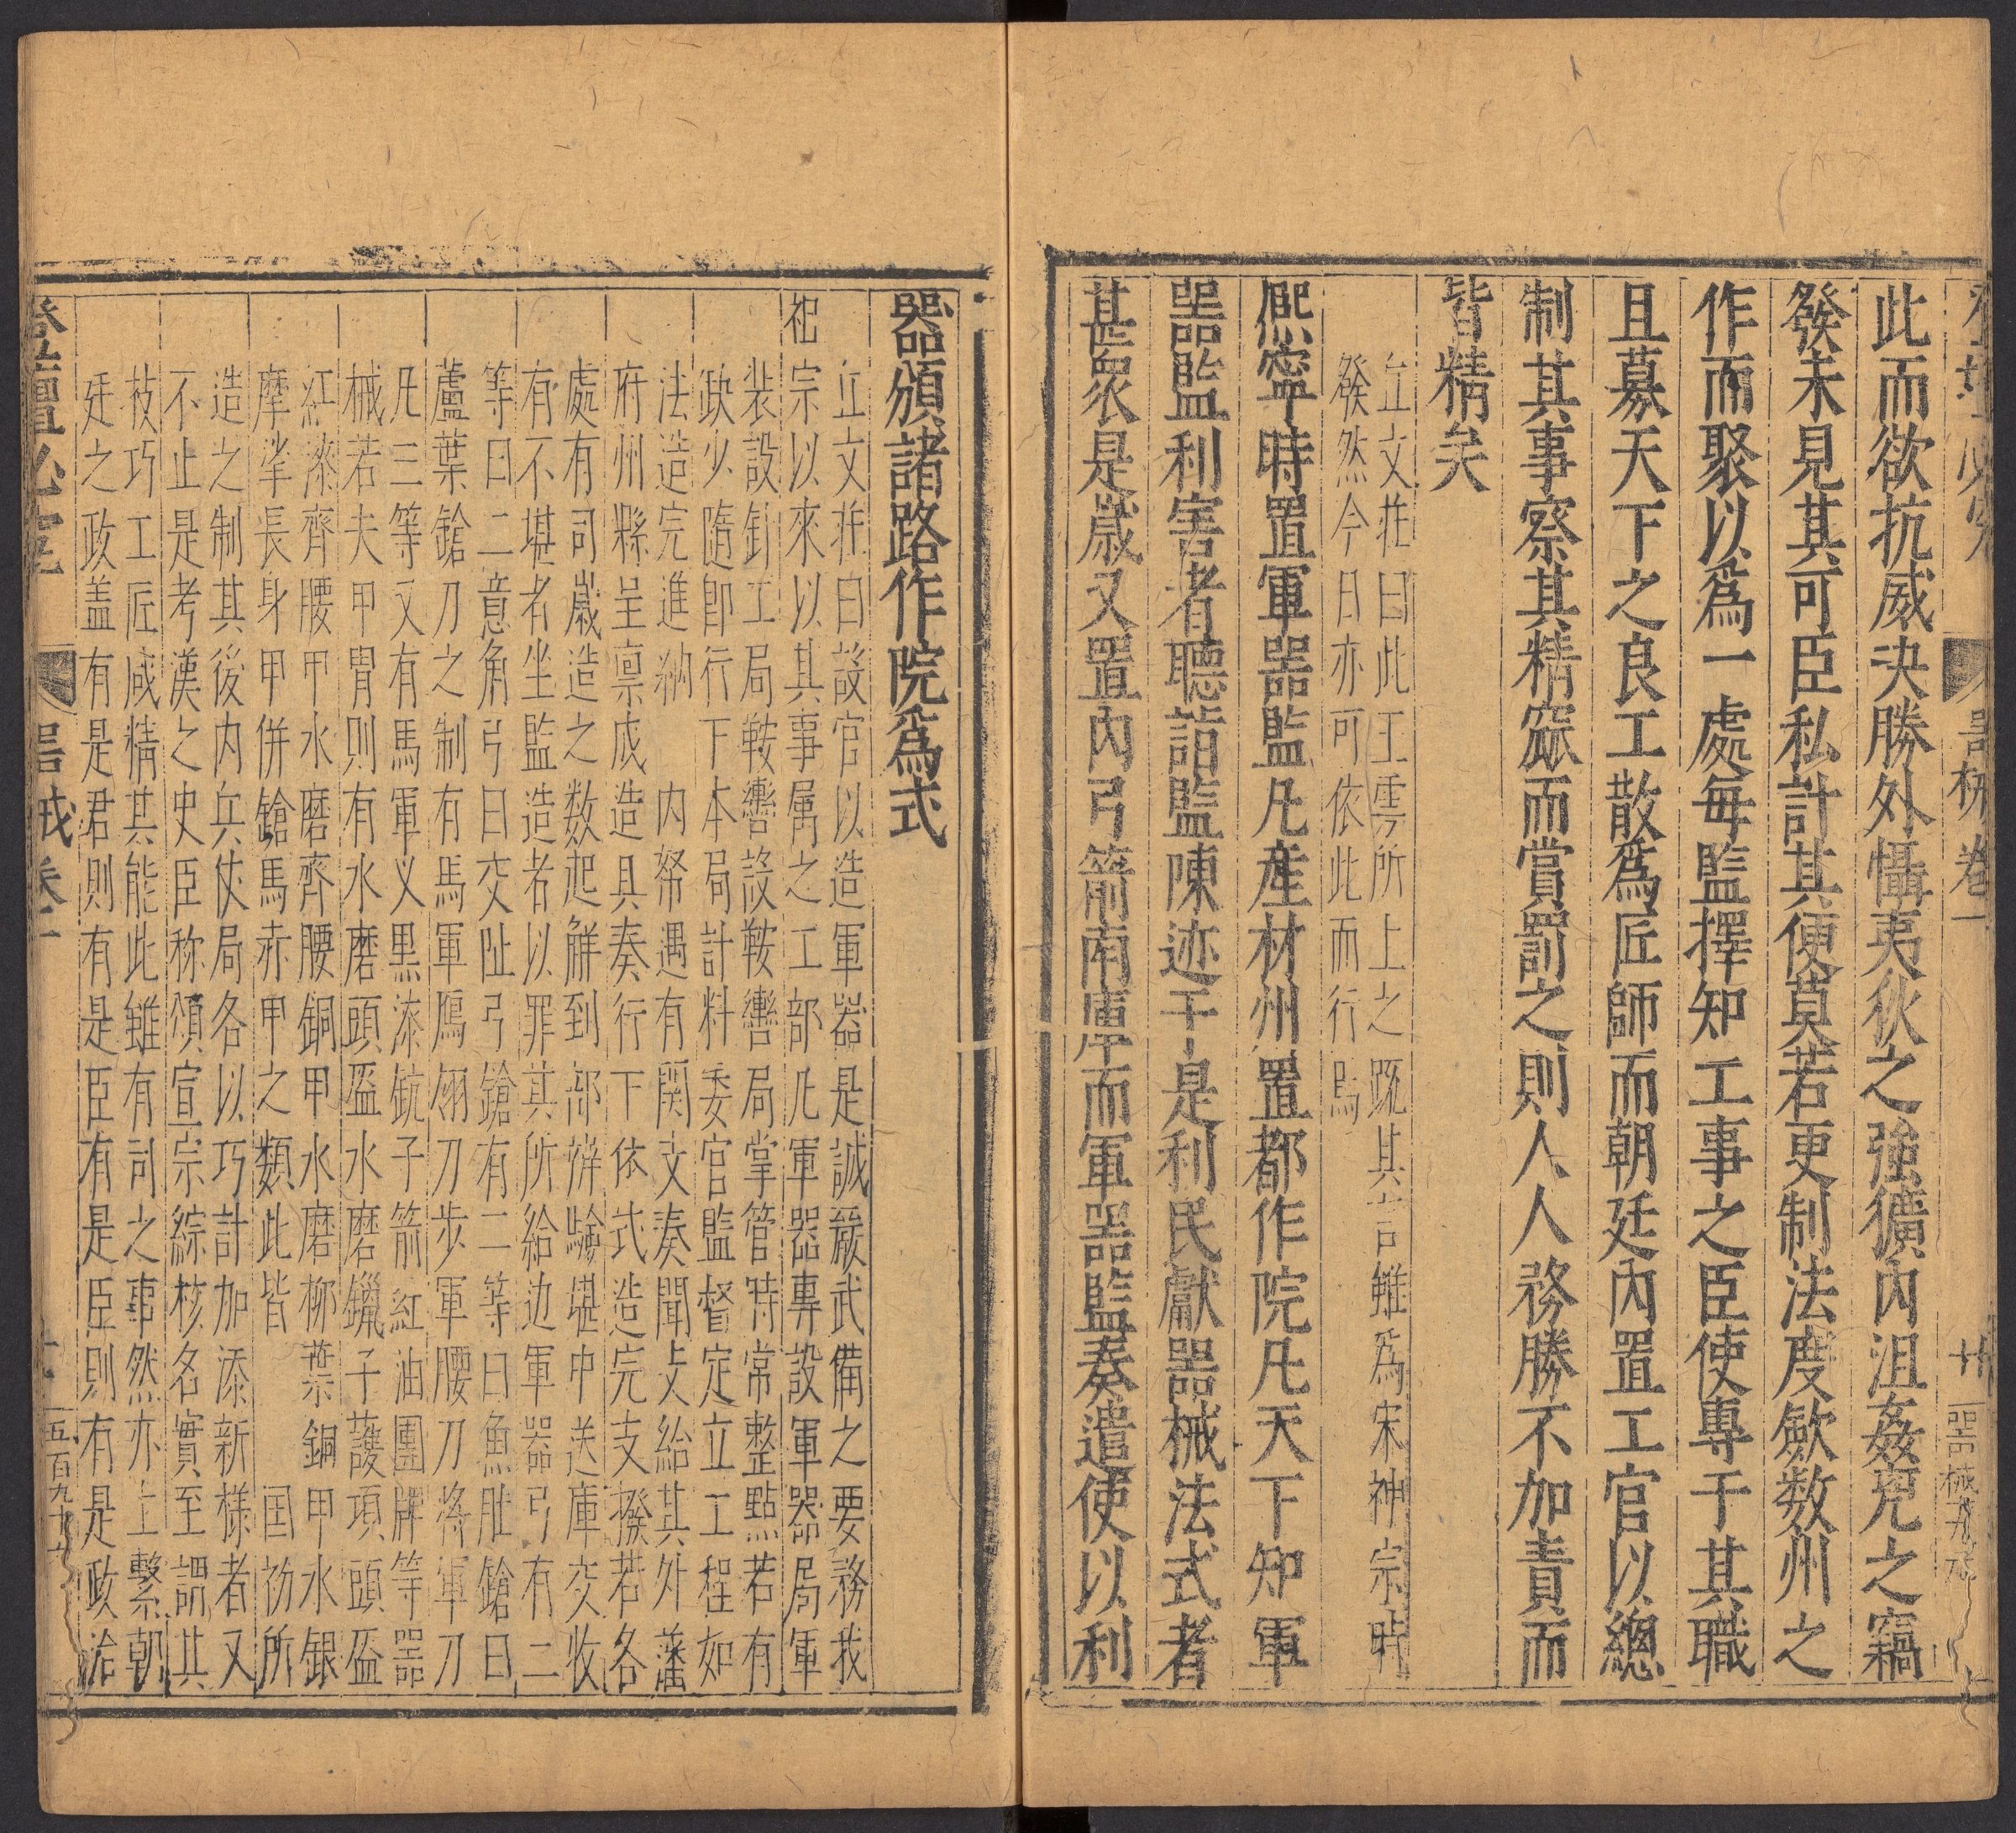 器械卷一
器械九
此而欲抗威決勝外懾夷狄之強獷內沮姦兇之竊
發未見其可臣私計其便莫若更制法度斂数州之
作而聚以爲一處每監擇知工事之臣使專于其職
且募天下之良工散爲匠師而朝廷內置工官以總
制其事察其精窳而賞罰之則人人務勝不加責而
皆精矣
丘文莊曰此王雱所上之既其言雖爲宋神宗時
發然今日亦可依此而行焉
熈寧時置軍噐監凡産材州置都作院凡天下知軍
噐監利害者聽詣監陳迹于是利民獻噐械法式者
甚衆是嵗又置內弓箭南庫而軍噐監奏遣使以利
器頒諸路作院爲式
丘文莊曰設官以造軍器是誠嚴武備之要務我
祖宗以來以其事属之工部凡軍器專設軍器局軍
装設針工局鞍轡設鞍轡局掌管特常整點若有
政少隨即行下本局計料委官監督定立工程如
法造完進納 内帑遇有関文奏聞支給其外藩
府州縣呈禀成造具奏行下依式造完支撥若各
處有司嵗造之数起觧到部辨驗堪中送庫交收
有不堪者坐監造者以罪其所給边軍器弓有二
等曰二意角弓曰交阯弓鎗有二等曰魚肚鎗曰
蘆葉鎗刀之制有馬軍鴈翎刀步軍腰刀将軍刀
凡三等又有馬軍义黒漆鈧子箭紅油團牌等噐
械若夫甲冑則有水磨頭盔水磨鑞子護項頭盔
紅漆齊腰甲水磨齊腰銅甲水磨柳葉銅甲水銀
摩挲長身甲併鎗馬赤甲之類此皆 国初所
造之制其後内兵仗局各以巧計加添新樣者又
不止是考漢之史臣称頌宣宗綜核名實至謂其
技巧工匠咸精其能此雖有司之事然亦上繫朝
廷之政盖有是君則有是臣有是臣則有是政洽
登壇必究
器械卷一
五百九十九